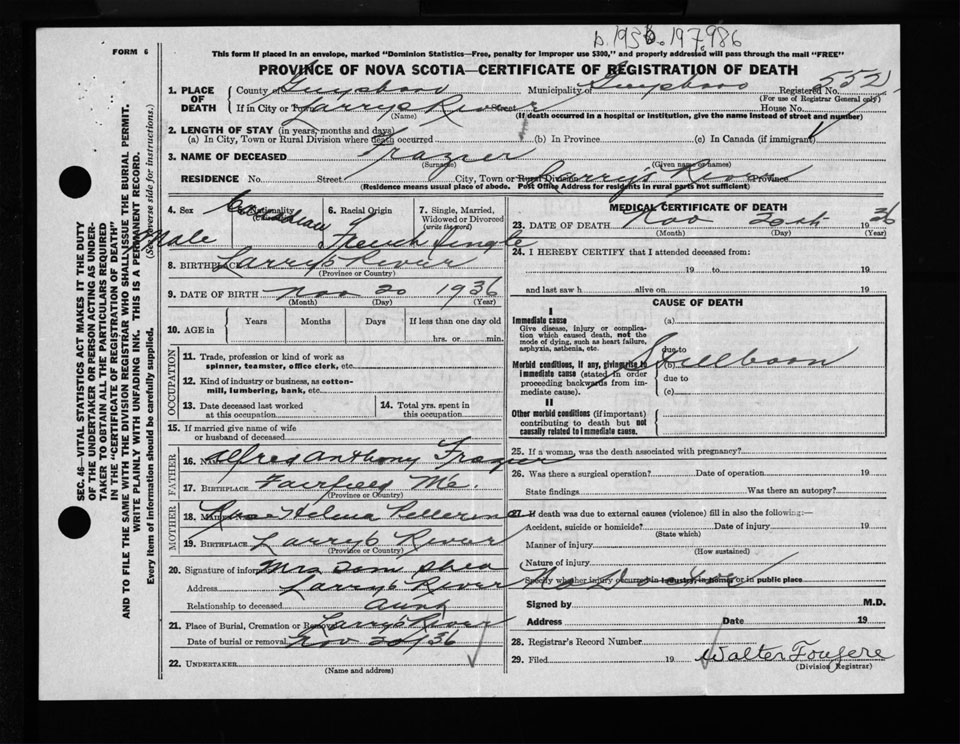 D.1936.197986
FORM 6
This form if placed in an envelope, marked "Dominion Statistics—Free, penalty for improper use $300," and properly addressed will pass through the mail "FREE"
PROVINCE OF NOVA SCOTIA—CERTIFICATE OF REGISTRATION OF DEATH
1. PLACE OF DEATH
County of Guysboro Municipality of Guysboro Registered No. 552
(For use of Registrar General only)
If in City or Town Larrys River Street House No.
(Name) (If death occurred in a hospital or institution, give the name instead of street and number)
2. LENGTH OF STAY (in years, months and days)
(a) In City, Town or Rural Division where death occurred (b) In Province (c) In Canada (if immigrant)
3. NAME OF DECEASED Frazier
(Surname) (Given name or names)
RESIDENCE No. Street City, Town or Rural Division Larrys River Province
(Residence means usual place of abode. Post Office Address for residents in rural parts not sufficient)
4. Sex Male
Nationality Canadian
6. Racial Origin French
7. Single, Married, Widowed or Divorced (write the word) Single
8. BIRTHPLACE Larrys River
(Province or Country)
9. DATE OF BIRTH Nov 20 1936
(Month) (Day) (Year)
10. AGE in
Years Months Days If less than one day old
hrs. or min.
OCCUPATION
11. Trade, profession or kind of work as spinner, teamster, office clerk, etc.
12. Kind of industry or business, as cotton-mill, lumbering, bank, etc.
13. Date deceased last worked at this occupation
14. Total yrs. spent in this occupation
15. If married give name of wife or husband of deceased
FATHER
16. Alfred Anthony Frazier
17. BIRTHPLACE Fairfield Me.
(Province or Country)
MOTHER
18. Helena Pellerine
19. BIRTHPLACE Larrys River
(Province or Country)
20. Signature of informant Mrs Tom Shea
Address Larrys River
Relationship to deceased Aunt
21. Place of Burial, Cremation or Removal Larrys River
Date of burial or removal Nov 20/36
22. UNDERTAKER
(Name and address)
MEDICAL CERTIFICATE OF DEATH
23. DATE OF DEATH Nov 20th 36
(Month) (Day) (Year)
24. I HEREBY CERTIFY that I attended deceased from:
19 to 19
and last saw h alive on 19
CAUSE OF DEATH
I
Immediate cause
Give disease, injury or complication which caused death, not the mode of dying, such as heart failure, asphyxia, asthenia, etc.
(a)
due to
Morbid conditions, if any, giving rise to immediate cause (stated in order proceeding backwards from immediate cause).
(b) Stillborn
due to
(c)
II
Other morbid conditions (if important) contributing to death but not causally related to immediate cause.
25. If a woman, was the death associated with pregnancy?
26. Was there a surgical operation? Date of operation 19
State findings Was there an autopsy?
27. If death was due to external causes (violence) fill in also the following:—
Accident, suicide or homicide? Date of injury 19
(State which)
Manner of injury
(How sustained)
Nature of injury
Specify whether injury occurred in industry, in home, or in public place
Signed by M.D.
Address Date 19
28. Registrar's Record Number
29. Filed 19 Walter Fougere
(Division Registrar)
SEC. 46—VITAL STATISTICS ACT MAKES IT THE DUTY
OF THE UNDERTAKER OR PERSON ACTING AS UNDER-
TAKER TO OBTAIN ALL THE PARTICULARS REQUIRED
IN THE "CERTIFICATE OF REGISTRATION OF DEATH"
AND TO FILE THE SAME WITH THE DIVISION REGISTRAR WHO SHALL ISSUE THE BURIAL PERMIT.
WRITE PLAINLY WITH UNFADING INK. THIS IS A PERMANENT RECORD.
Every item of information should be carefully supplied. (See reverse side for instructions.)